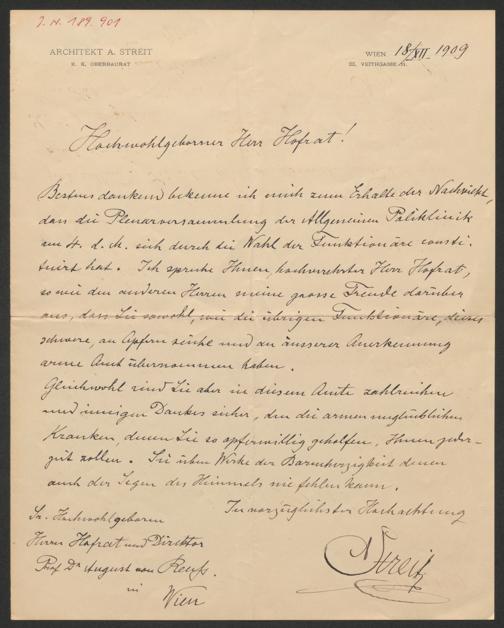 J. N. 189.901
ARCHITEKT A. STREIT
K. K. OBERBAURAT
WIEN 18/XII. 1909
III. VEITHGASSE
Hochwohlgeborner Herr Hofrat!
Bestens dankend bekenne ich mich zum Erhalte der Nachricht,
dass die Plenarversammlung der Allgemeinen Poliklinik
am 4. d. M. sich durch die Wahl der Funktionäre consti-
tuirt hat. Ich spreche Ihnen hochverehrter Herr Hofrat,
sowie den anderen Herren meine grosse Freude darüber
aus, dass Sie sowohl, wie die übrigen Funktionäre, dieses
schwere, an Opfern reiche und an äusserer Anerkennung
arme Amt übernommen haben.
Gleichwohl sind Sie aber in diesem Amte zahlreichen
und innigen Dankes sicher, den die armen unglücklichen
Kranken, denen Sie so opferwillig geholfen, Ihnen jeder-
zeit zollen. Sie üben Werke der Barmherzigkeit denen
auch der Segen des Himmels nie fehlen kann.
In vorzüglichster Hochachtung
AStreit
Sr. Hochwohlgeboren
Herrn Hofrat und Direktor
Prof. Dr. August von Reuss.
in
Wien